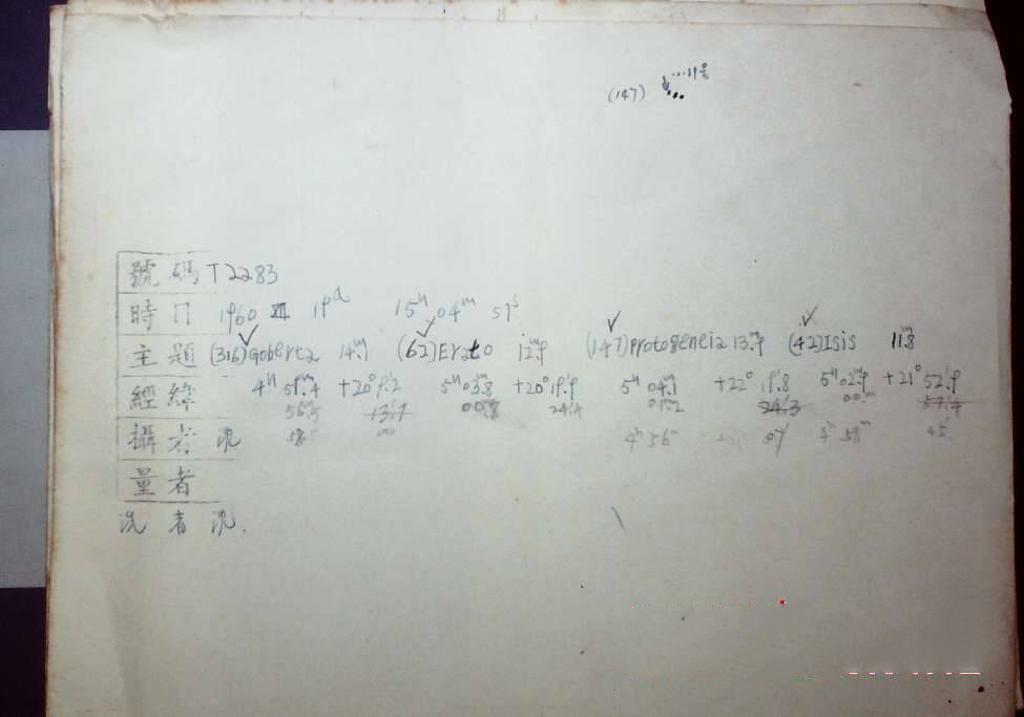 (147)
號碼 T2283
時日 1960 XII 19ᵈ 15ʰ 04ᵐ 59ˢ
主題 (316)Goberta 14ᵐ.1 (62)Erato 12ᵐ.9 (147)Protogeneia 13ᵐ.9 (42)Isis 11ᵐ.8
經緯 4ʰ 59ᵐ.4 +20°9'.2 5ʰ 03ᵐ.8 +20°19'.9 5ʰ 04ᵐ.1 +22° 19'.8 5ʰ 02ᵐ.9 +21° 52'.9
00.8 24.4 01.2 24.3 57.4
攝者 沈 4ʰ 56ᵐ 07 4ʰ 58ᵐ 45
量者
洗者 沈.